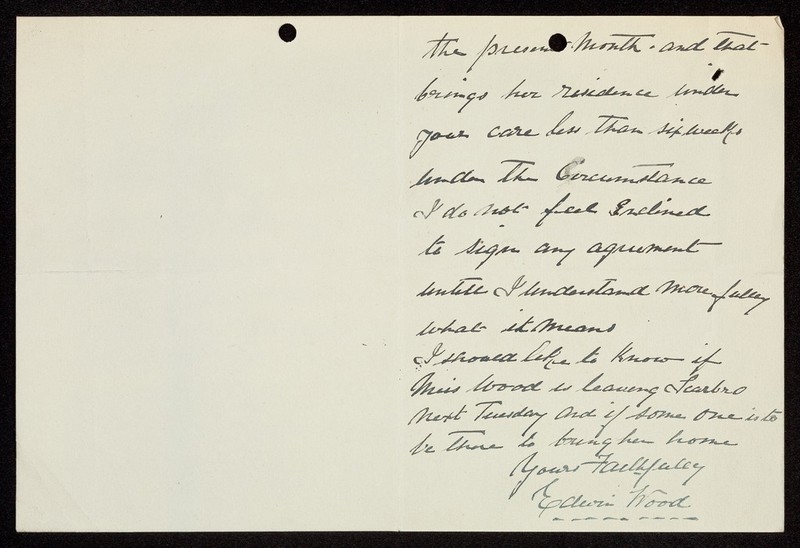 the present Month. and that
brings her residence under
your care less than six weeks
under the Circumstance
I do not feel Enclined
to sign any agreement
untill I understand More fulley
what it Means
I should like to Know if
Miss Wood is leaving Scarbro
next Tuesday and if some one is to
be there to bring her home
Yours Faithfuley
Edwin Wood